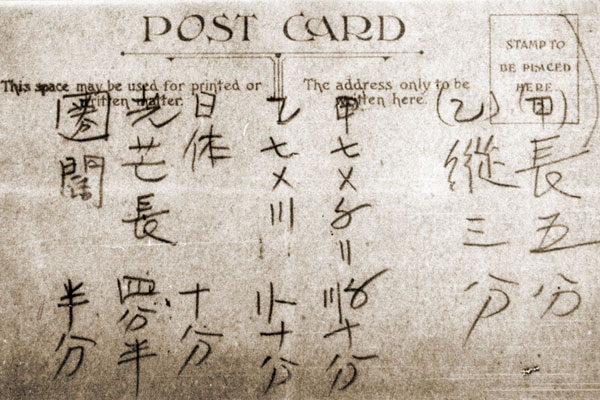 POST CARD
This space may be used for printed or written matter.
The address only to be written here.
STAMP TO
BE PLACED
HERE
(甲)長五分
(乙)縱三分
甲七〤〥〢〣〥十分
乙七〤〣〢〢一十分
日体十分
光芒長四分半
圈闊半分